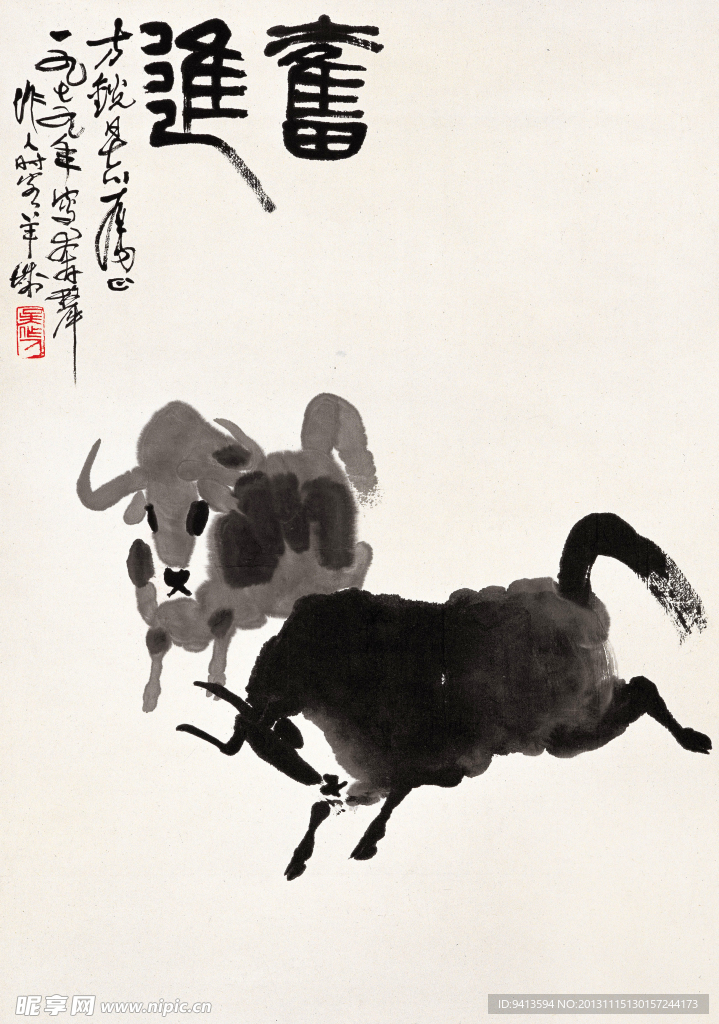 奮進
方銳同志正
一九七九年寫奔犛
作人时客羊城
吳作人
昵享网 www.nipic.cn
ID:9413594 NO:20131115130157244173